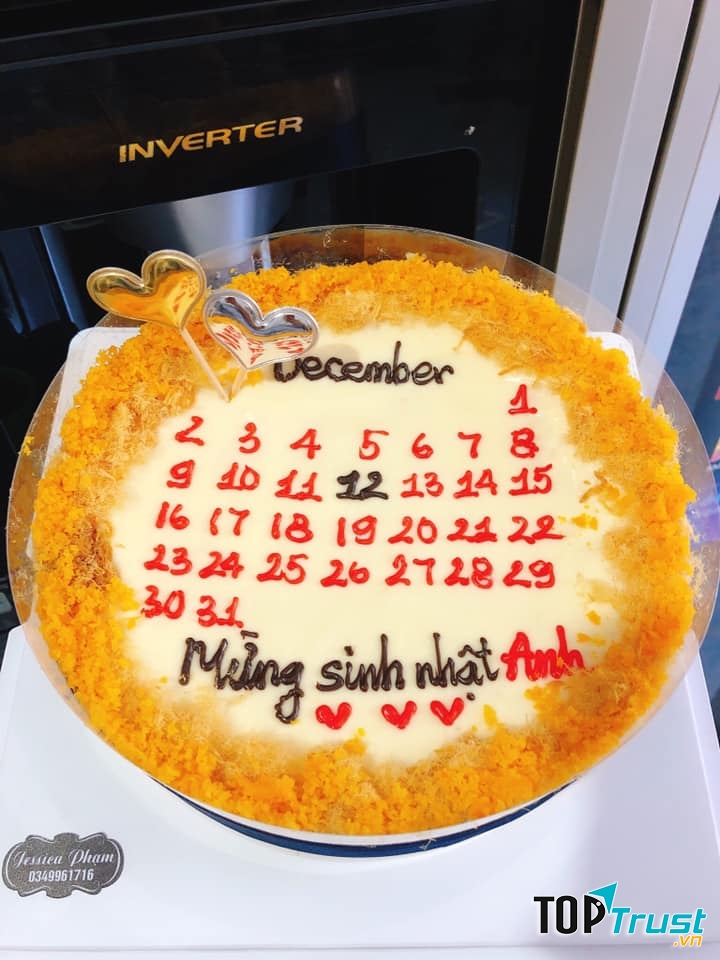 INVERTER
December
1
2 3 4 5 6 7 8
9 10 11 12 13 14 15
16 17 18 19 20 21 22
23 24 25 26 27 28 29
30 31
Mừng sinh nhật Anh
Jessica Phạm
0349961716
TOPTrust
.vn